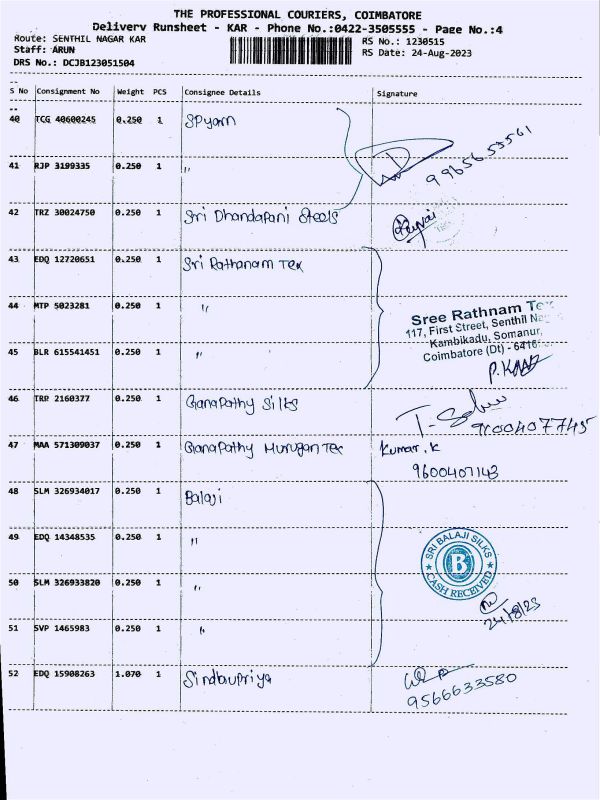 THE PROFESSIONAL COURIERS, COIMBATORE
Delivery Runsheet - KAR - Phone No.:0422-3505555 - Page No.:4
Route: SENTHIL NAGAR KAR
Staff: ARUN
DRS No.: DCJB123051504
RS No.: 1230515
RS Date: 24-Aug-2023
S No Consignment No Weight PCS Consignee Details Signature
40 TCG 40600245 0.250 1 SPyarn
99656 53561
41 RJP 3199335 0.250 1 "
42 TRZ 30024750 0.250 1 Sri Dhandapani Steels
43 EDQ 12720651 0.250 1 Sri Rathanam Tex
44 MTP 5023281 0.250 1 "
Sree Rathnam Tex
117, First Street, Senthil
Kambikadu, Somanur,
Coimbatore (Dt) -
45 BLR 615541451 0.250 1 "
46 TRP 2160377 0.250 1 GanaPathy Silks
9600407745
47 MAA 571309037 0.250 1 GanaPathy Murugan Tex Kumar.K
9600407143
48 SLM 326934017 0.250 1 Balaji
49 EDQ 14348535 0.250 1 "
SRI BALAJI SILKS
B
CASH RECEIVED
50 SLM 326933820 0.250 1 "
24/8/23
51 SVP 1465983 0.250 1 "
52 EDQ 15908263 1.070 1 Sindhupriya
9566633580